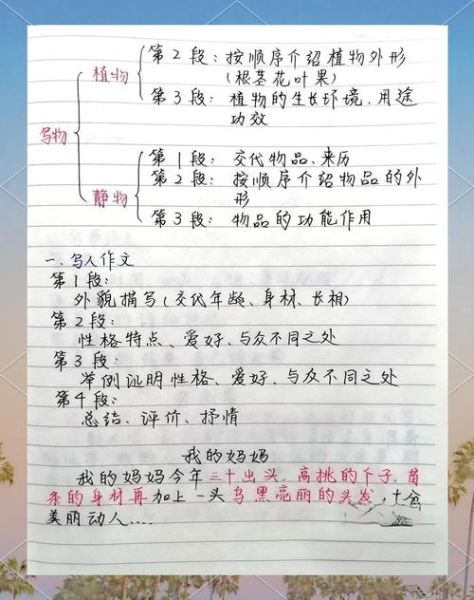 第2段：按顺序介绍植物外形
植物
(根茎花叶果)
第3段：植物的生长环境、用途
功效
写物
第1段：交代物品、来历
第2段：按顺序介绍物品的外
静物
形
第3段：物品的功能作用
一.写人作文
第1段：
外貌描写(交代年龄、身材、长相)
第2段：
性格特点、爱好、与众不同之处
第3段：
举例证明性格、爱好、与众不同之处
第4段：
总结、评价、抒情
我的妈妈
我的妈妈今年三十出头，高挑的个子，苗
条的身材再加上一头乌黑亮丽的头发，十分
美丽动人....